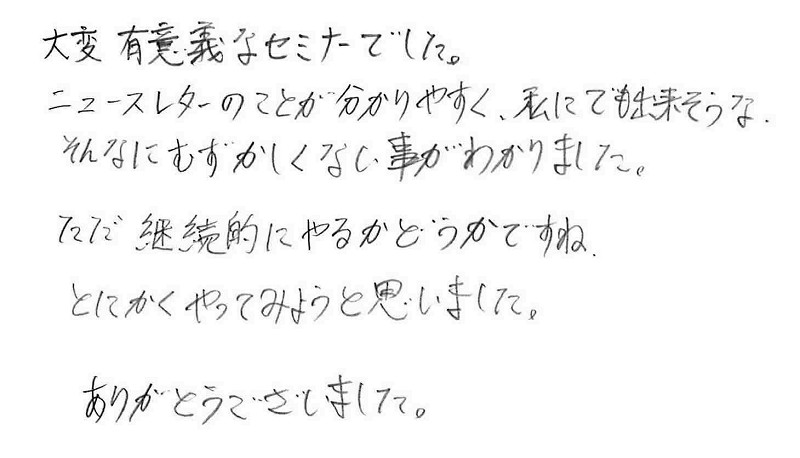 大変 有意義なセミナーでした。
ニュースレターのことが分かりやすく、私にでも出来そうな.
そんなにむずかしくない事がわかりました。
ただ 継続的にやるかどうかですね.
とにかくやってみようと思いました。
ありがとうございました。